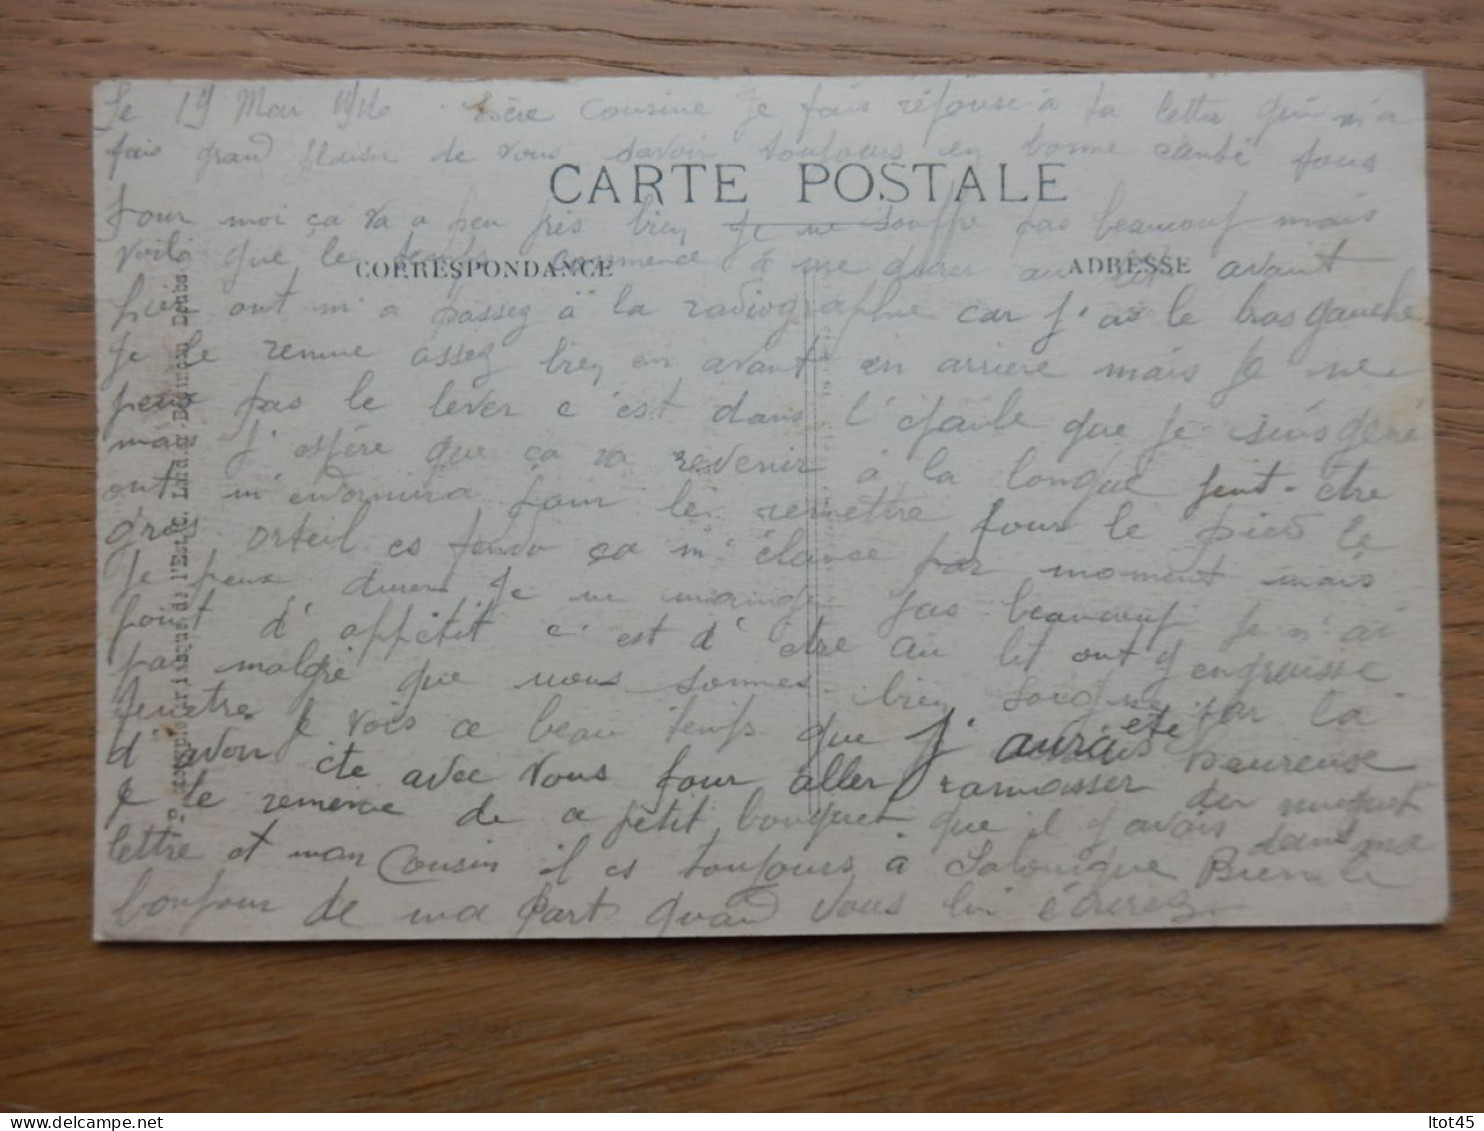 Le 19 Mai 1916 Chère Cousine Je fais réponse à ta lettre qui m'a
fais grand plaisir de vous savoir toujours en bonne santé tous
CARTE POSTALE
pour moi ça va a peu près bien Je ne souffre pas beaucoup mais
voilà que le temps commence à me durer au lit avant
CORRESPONDANCE
ADRESSE
hier ont m'a passez à la radiographie car j'ai le bras gauche
Je le remue assez bien en avant en arriere mais Je ne
peux pas le lever c'est dans l'épaule que je suis gené
mais J'espère que ça va revenir à la longue peut-être
ont m'endormira pour le remettre pour le pied le
gros orteil es fendu ça m'élance par moment mais
Je peux durer Je ne mange pas beaucoup Je n'ai
point d'appétit c'est d'être au lit ont engraisse
pas malgré que nous sommes bien soigné par la
fenêtre Je vois ce beau temps que J'aurais été heureuse
d'avoir été avec vous pour aller ramasser du muguet
Je te remercie de ce petit bouquet que il y avais dans ma
lettre et mon Cousin il es toujours a Salonique Bien le
bonjour de ma part quand vous lui écrirez